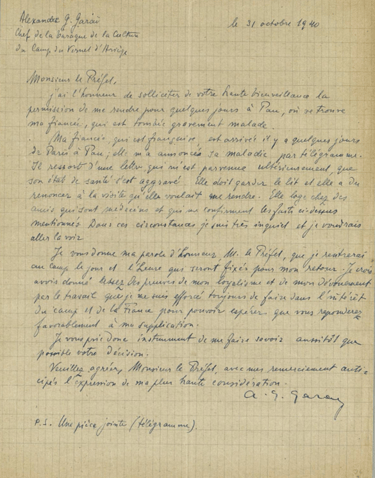 Alexandre G. Garai
Chef de la Baraque de la Culture
du Camp du Vernet d'Ariège
le 31 octobre 1940
Monsieur le Préfet,
j'ai l'honneur de solliciter de votre haute bienveillance la
permission de me rendre pour quelques jours à Pau, où se trouve
ma fiancée, qui est tombée gravement malade.
Ma fiancée qui est française, est arrivée il y a quelques jours
de Paris à Pau; elle m'a annoncé sa maladie par télégramme.
Il ressort d'une lettre qui m'est parvenue ultérieurement, que
son état de santé s'est aggravé. Elle doit garder le lit et elle a dû
renoncer à la visite qu'elle voulait me rendre. Elle loge chez des
amis qui sont médecins et qui me confirment les faits ci-dessus
mentionnés. Dans ces circonstances je suis très inquiet et je voudrais
aller la voir.
Je vous donne ma parole d'honneur, M. le Préfet, que je rentrerai
au camp le jour et l'heure qui seront fixés pour mon retour. Je crois
avoir donné assez des preuves de mon loyalisme et de mon dévouement
par le travail que je me suis efforcé toujours de faire dans l'intérêt
du camp et de la France pour pouvoir espérer que vous répondrez
favorablement à ma supplication.
Je vous prie donc instamment de me faire savoir aussitôt que
possible votre décision.
Veuillez agréer, Monsieur le Préfet, avec mes remerciements anti-
cipés l'expression de ma plus haute considération.
A. G. Garai
P.S. Une pièce jointe (télégramme).